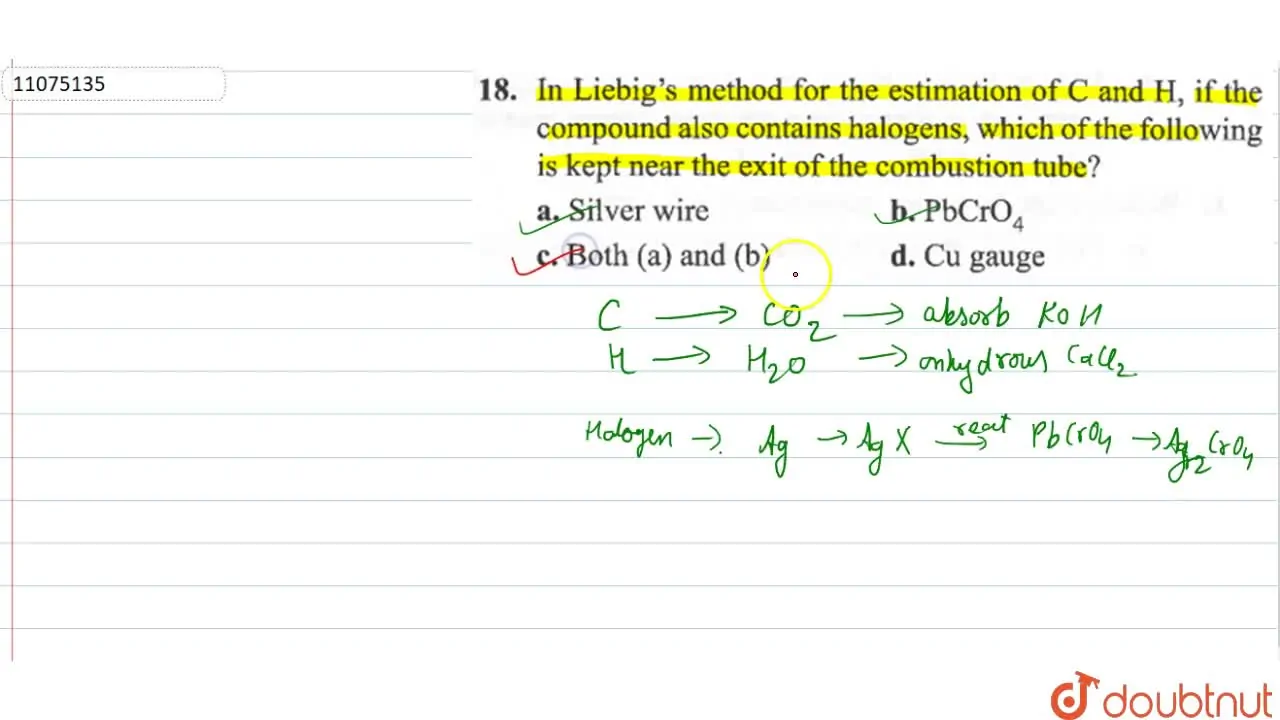 11075135
18. In Liebig's method for the estimation of C and H, if the
compound also contains halogens, which of the following
is kept near the exit of the combustion tube?
a. Silver wire b. PbCrO₄
c. Both (a) and (b) d. Cu gauge
C → CO₂ → absorb KOH
H → H₂O → anhydrous CaCl₂
Halogen → Ag → AgX react → PbCrO₄ → Ag₂CrO₄
doubtnut